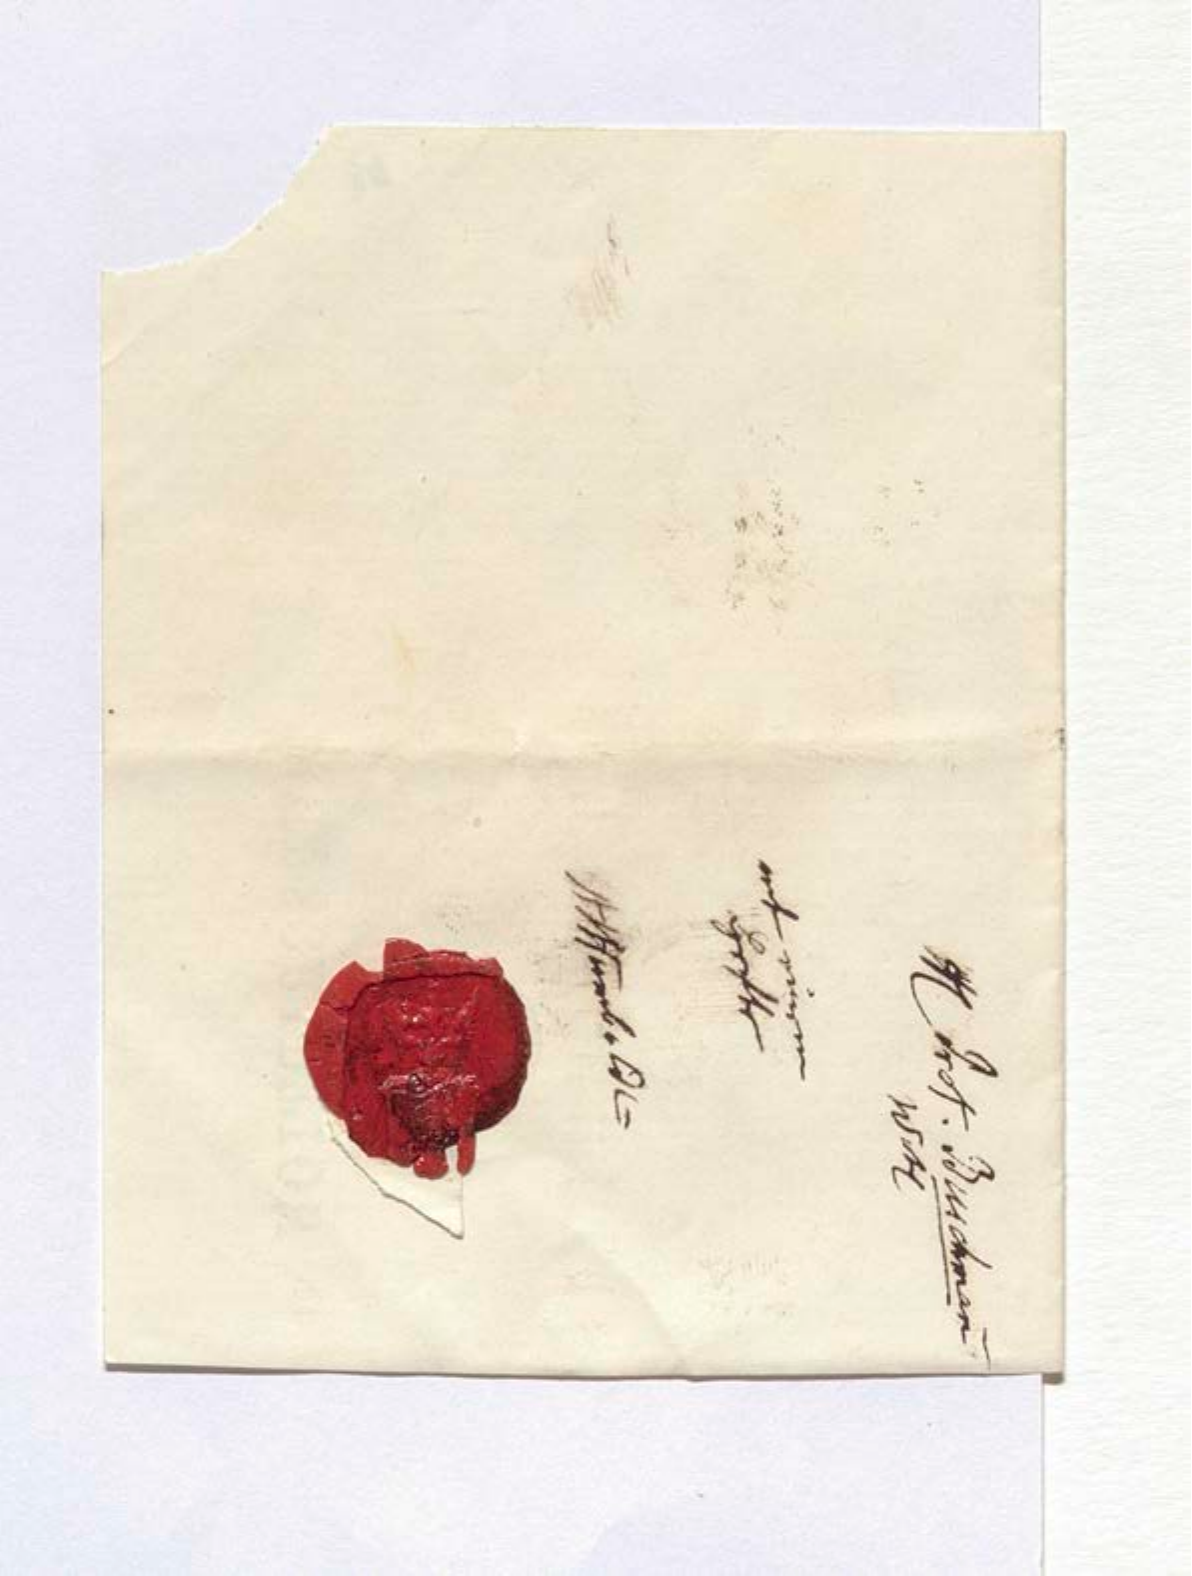 H Prof. Buschman
W H
mit einem
Hefte
AvHumboldt